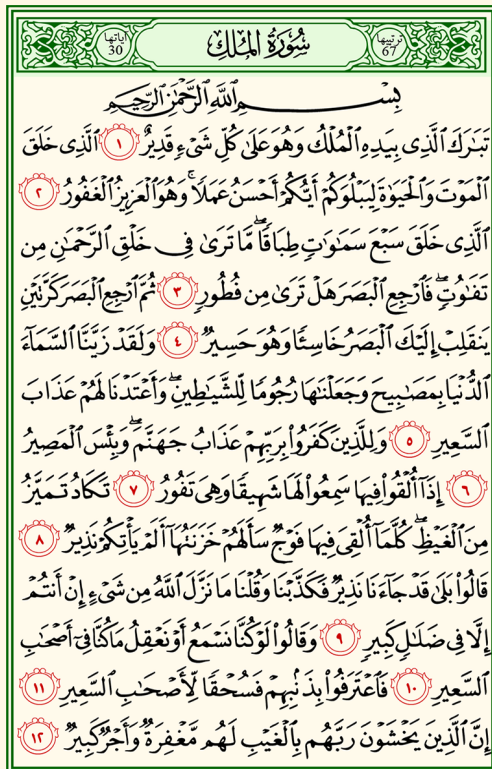 ترتيبها 67 سُورَةُ المُلكِ آياتها 30
بِسْمِ ٱللَّهِ ٱلرَّحْمَٰنِ ٱلرَّحِيمِ
تَبَٰرَكَ ٱلَّذِى بِيَدِهِ ٱلْمُلْكُ وَهُوَ عَلَىٰ كُلِّ شَىْءٍ قَدِيرٌ ١ ٱلَّذِى خَلَقَ
ٱلْمَوْتَ وَٱلْحَيَوٰةَ لِيَبْلُوَكُمْ أَيُّكُمْ أَحْسَنُ عَمَلًا ۚ وَهُوَ ٱلْعَزِيزُ ٱلْغَفُورُ ٢
ٱلَّذِى خَلَقَ سَبْعَ سَمَٰوَٰتٍ طِبَاقًا ۖ مَّا تَرَىٰ فِى خَلْقِ ٱلرَّحْمَٰنِ مِن
تَفَٰوُتٍ ۖ فَٱرْجِعِ ٱلْبَصَرَ هَلْ تَرَىٰ مِن فُطُورٍ ٣ ثُمَّ ٱرْجِعِ ٱلْبَصَرَ كَرَّتَيْنِ
يَنقَلِبْ إِلَيْكَ ٱلْبَصَرُ خَاسِئًا وَهُوَ حَسِيرٌ ٤ وَلَقَدْ زَيَّنَّا ٱلسَّمَآءَ
ٱلدُّنْيَا بِمَصَٰبِيحَ وَجَعَلْنَٰهَا رُجُومًا لِّلشَّيَٰطِينِ ۖ وَأَعْتَدْنَا لَهُمْ عَذَابَ
ٱلسَّعِيرِ ٥ وَلِلَّذِينَ كَفَرُوا۟ بِرَبِّهِمْ عَذَابُ جَهَنَّمَ ۖ وَبِئْسَ ٱلْمَصِيرُ
٦ إِذَآ أُلْقُوا۟ فِيهَا سَمِعُوا۟ لَهَا شَهِيقًا وَهِىَ تَفُورُ ٧ تَكَادُ تَمَيَّزُ
مِنَ ٱلْغَيْظِ ۖ كُلَّمَآ أُلْقِىَ فِيهَا فَوْجٌ سَأَلَهُمْ خَزَنَتُهَآ أَلَمْ يَأْتِكُمْ نَذِيرٌ ٨
قَالُوا۟ بَلَىٰ قَدْ جَآءَنَا نَذِيرٌ فَكَذَّبْنَا وَقُلْنَا مَا نَزَّلَ ٱللَّهُ مِن شَىْءٍ إِنْ أَنتُمْ
إِلَّا فِى ضَلَٰلٍ كَبِيرٍ ٩ وَقَالُوا۟ لَوْ كُنَّا نَسْمَعُ أَوْ نَعْقِلُ مَا كُنَّا فِىٓ أَصْحَٰبِ
ٱلسَّعِيرِ ١٠ فَٱعْتَرَفُوا۟ بِذَنۢبِهِمْ فَسُحْقًا لِّأَصْحَٰبِ ٱلسَّعِيرِ ١١
إِنَّ ٱلَّذِينَ يَخْشَوْنَ رَبَّهُم بِٱلْغَيْبِ لَهُم مَّغْفِرَةٌ وَأَجْرٌ كَبِيرٌ ١٢